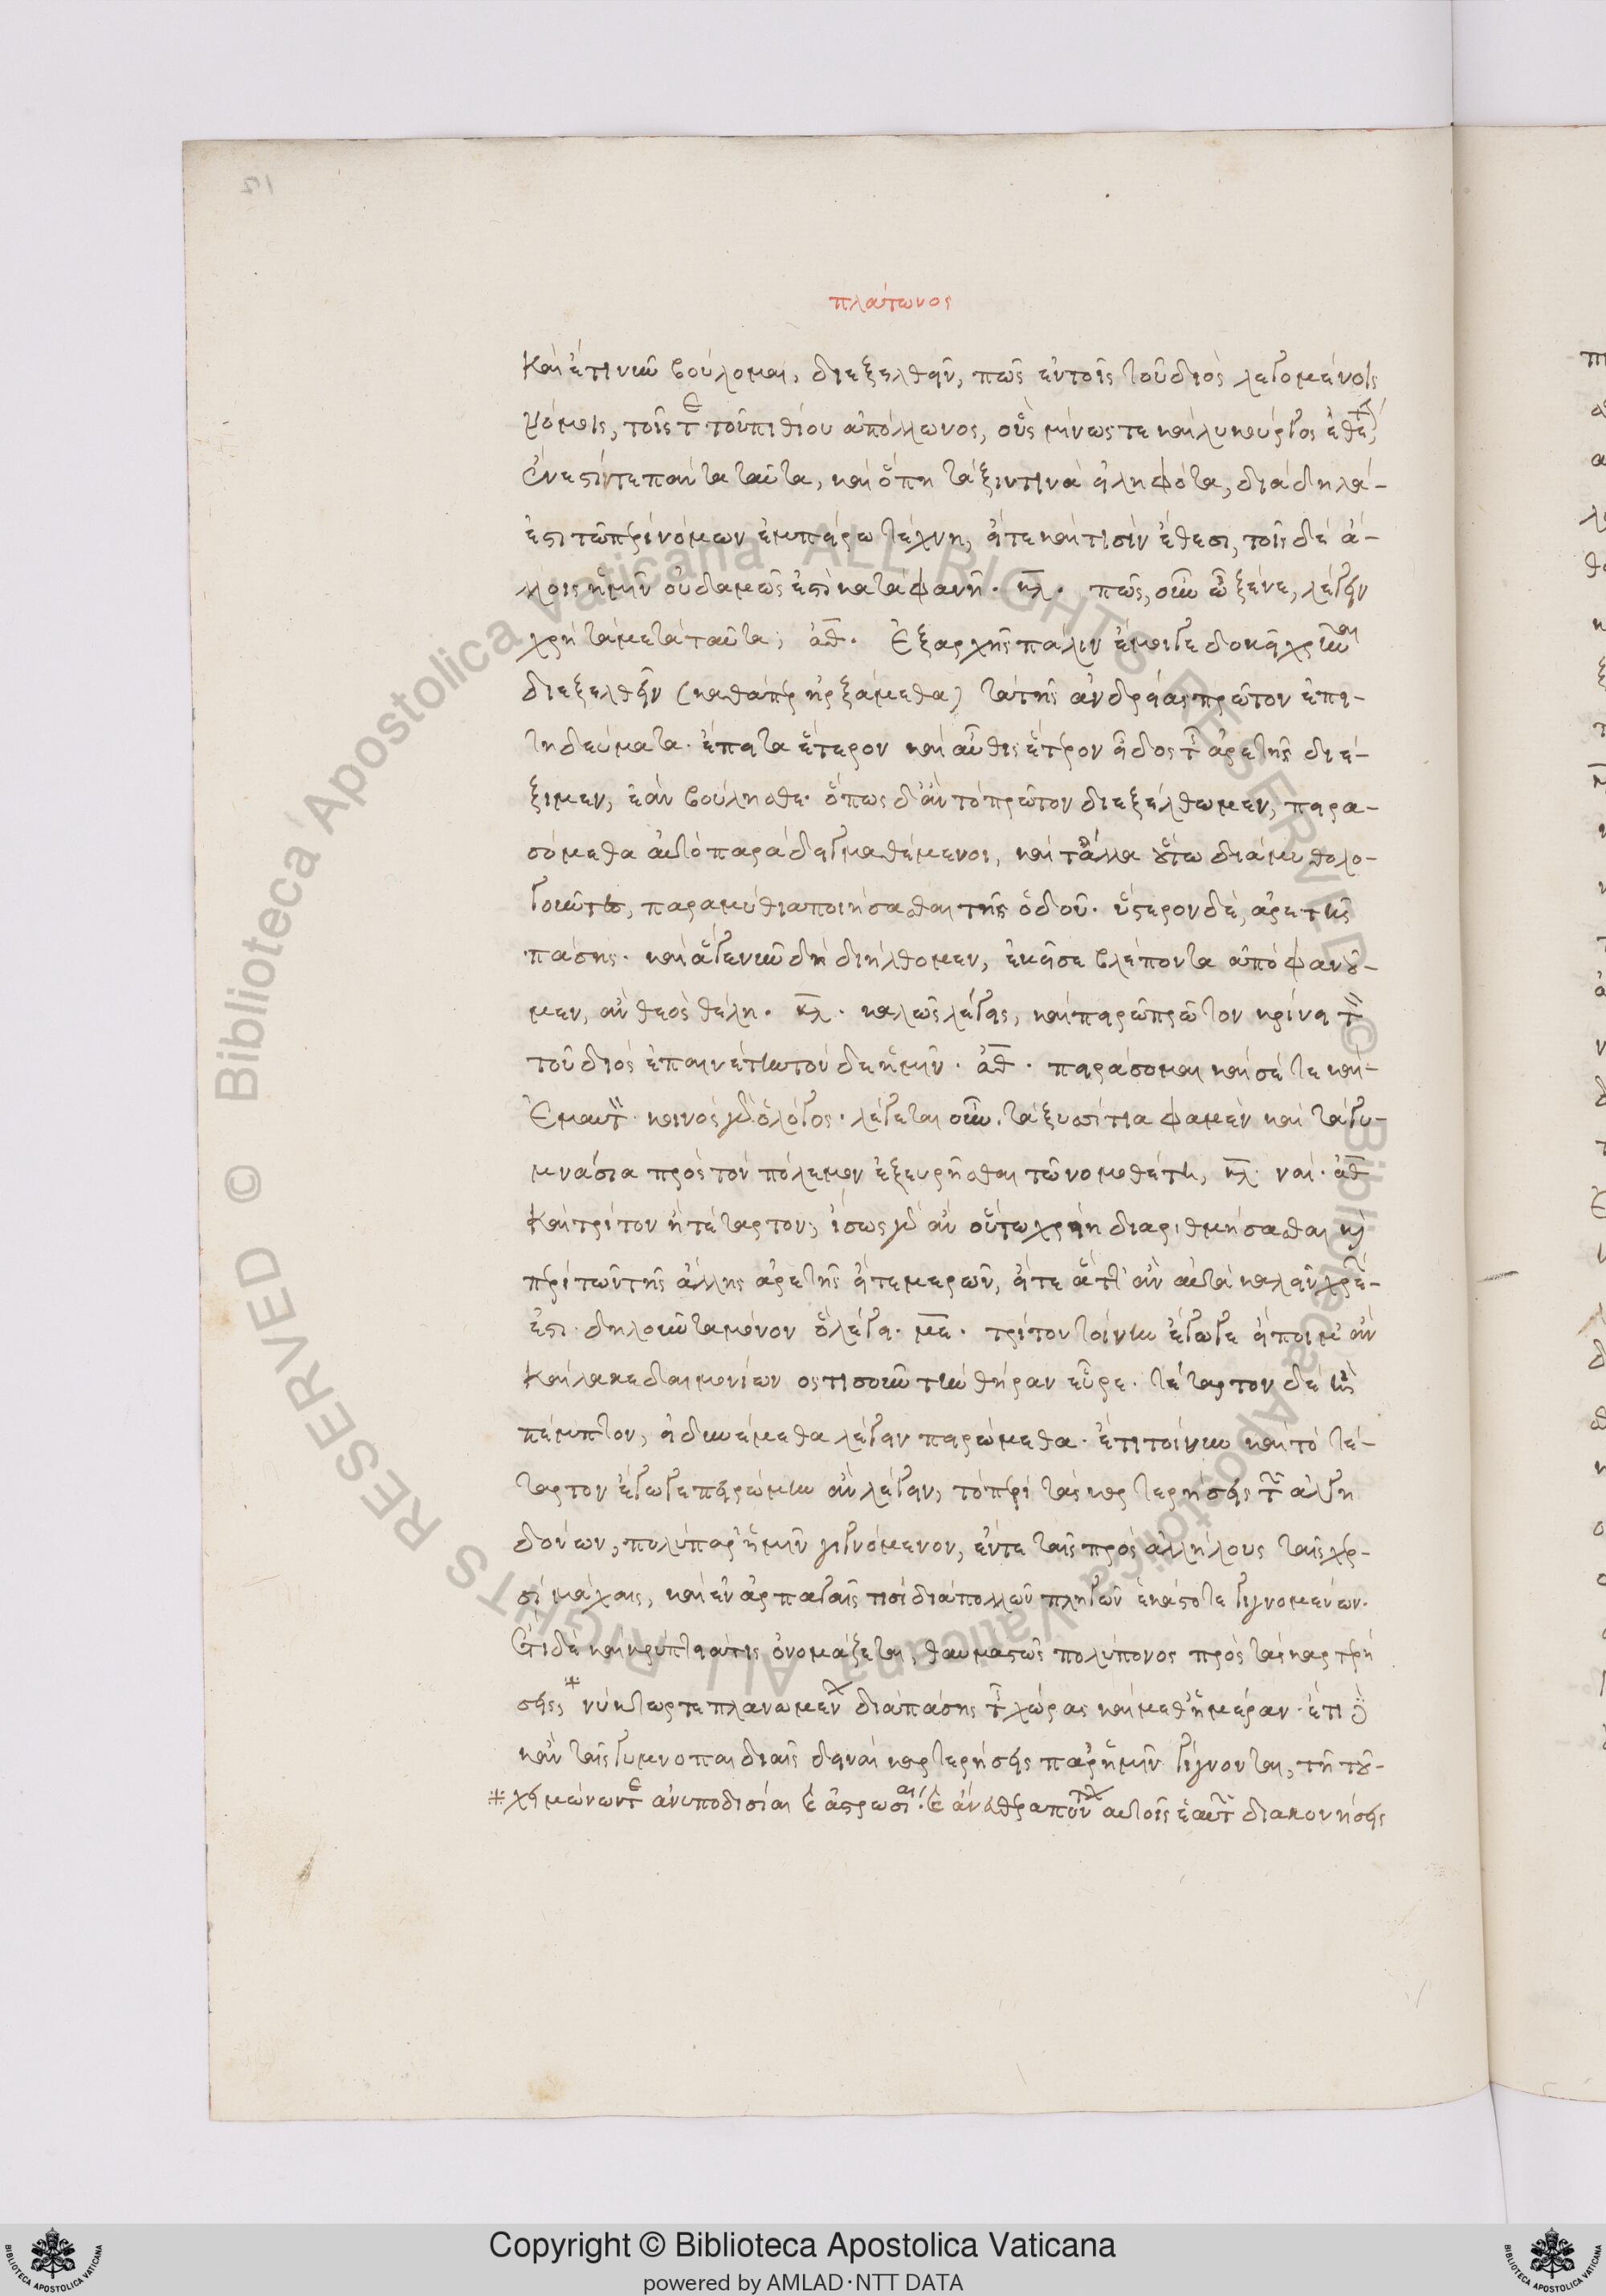 πλάτωνος
καὶ ἔτι νῦν βούλομαι, διεξελθεῖν, πῶς ἐν τοῖς τοῦ διὸς λεγομένοις
νόμοις, τοῖς τε τοῦ πιθίου ἀπόλλωνος, οὓς μίνως τε καὶ λυκοῦργος ἐθέτην,
ἔνεστί τε πάντα ταῦτα, καὶ ὅπη τάξιν τινὰ εἰληφότα, διάδηλά-
ἐστι τῶ περὶ νόμων ἐμπείρω τέχνη, εἴτε καί τισιν ἔθεσι, τοῖς δὲ ἄ-
λλοις ἡμῖν οὐδαμῶς ἐστὶ καταφανῆ. κλ. πῶς, οὖν ὦ ξένε, λέγειν
χρὴ τὰ μετὰ ταῦτα; ἀθ. ἐξ ἀρχῆς πάλιν ἔμοιγε δοκεῖ χρῆναι
διεξελθεῖν (καθάπερ ἠρξάμεθα) τὰ τῆς ἀνδρείας πρῶτον ἐπι-
τηδεύματα. ἔπειτα ἕτερον καὶ αὖθις ἕτερον εἶδος τῆς ἀρετῆς διέ-
ξιμεν, ἐὰν βούλησθε. ὅπως δ' ἂν τὸ πρῶτον διεξέλθωμεν, πειρα-
σόμεθα αὐτὸ παράδειγμα θέμενοι, καὶ τἆλλα οὕτω διαμυθολο-
γοῦντες, παραμύθια ποιήσασθαι τῆς ὁδοῦ. ὕστερον δὲ, ἀρετῆς
πάσης. καὶ ἅ γε νῦν δὴ διήλθομεν, ἐκεῖσε βλέποντα ἀποφανοῦ-
μεν, ἂν θεὸς θέλη. κλ. καλῶς λέγεις, καὶ πειρῶ πρῶτον κρίνειν τὸν
τοῦ διὸς ἐπαινέτην τόνδε ἡμῖν. ἀθ. πειράσομαι καὶ σέ τε καὶ-
ἐμαυτόν. κοινὸς γὰρ ὁ λόγος. λέγεται οὖν. τὰ ξυσίτια φαμὲν καὶ τὰ γυ-
μνάσια πρὸς τὸν πόλεμον ἐξευρῆσθαι τῶ νομοθέτη, κλ. ναί. ἀθ
καὶ τρίτον ἢ τέταρτον; ἴσως γὰρ ἂν οὕτω χρείη διαριθμήσασθαι καὶ
περὶ τῶν τῆς ἄλλης ἀρετῆς εἴτε μερῶν, εἴτε ἅττ' ἂν αὐτὰ καλεῖν χρεών-
ἐστι. δηλοῦντα μόνον ὃ λέγει. με. τρίτον τοίνυν ἔγωγε εἴποιμ' ἂν
καὶ λακεδαιμονίων ὁστισοῦν τὴν θήραν εὗρε. τέταρτον δὲ ἢ
πέμπτον, εἰ δυναίμεθα λέγειν πειρώμεθα. ἔτι τοίνυν καὶ τὸ τέ-
ταρτον ἔγωγε πειρώμην ἂν λέγειν, τὸ περὶ τὰς καρτερήσεις τῶν ἀλγη
δόνων, πολὺ παρ' ἡμῖν γιγνόμενον, ἔν τε ταῖς πρὸς ἀλλήλους ταῖς χερ-
σὶ μάχαις, καὶ ἐν ἁρπαγαῖς τισὶ διὰ πολλῶν πληγῶν ἑκάστοτε γιγνομένων.
ἔτι δὲ καὶ κρυπτεία τις ὀνομάζεται, θαυμαστῶς πολύπονος πρὸς τὰς καρτερή
σεις, * νύκτωρ τε πλανωμένων διὰ πάσης τῆς χώρας καὶ μεθ' ἡμέραν. ἔτι δὲ
κἀν ταῖς γυμνοπαιδίαις δειναὶ καρτερήσεις παρ' ἡμῖν γίγνονται, τῆ τοῦ-
* χειμώνων τε ἀνυποδισίαι καὶ ἀστρωσίαι καὶ ἄνευ θεραπόντων αὐτοῖς ἑαυτῶν διακονήσεις